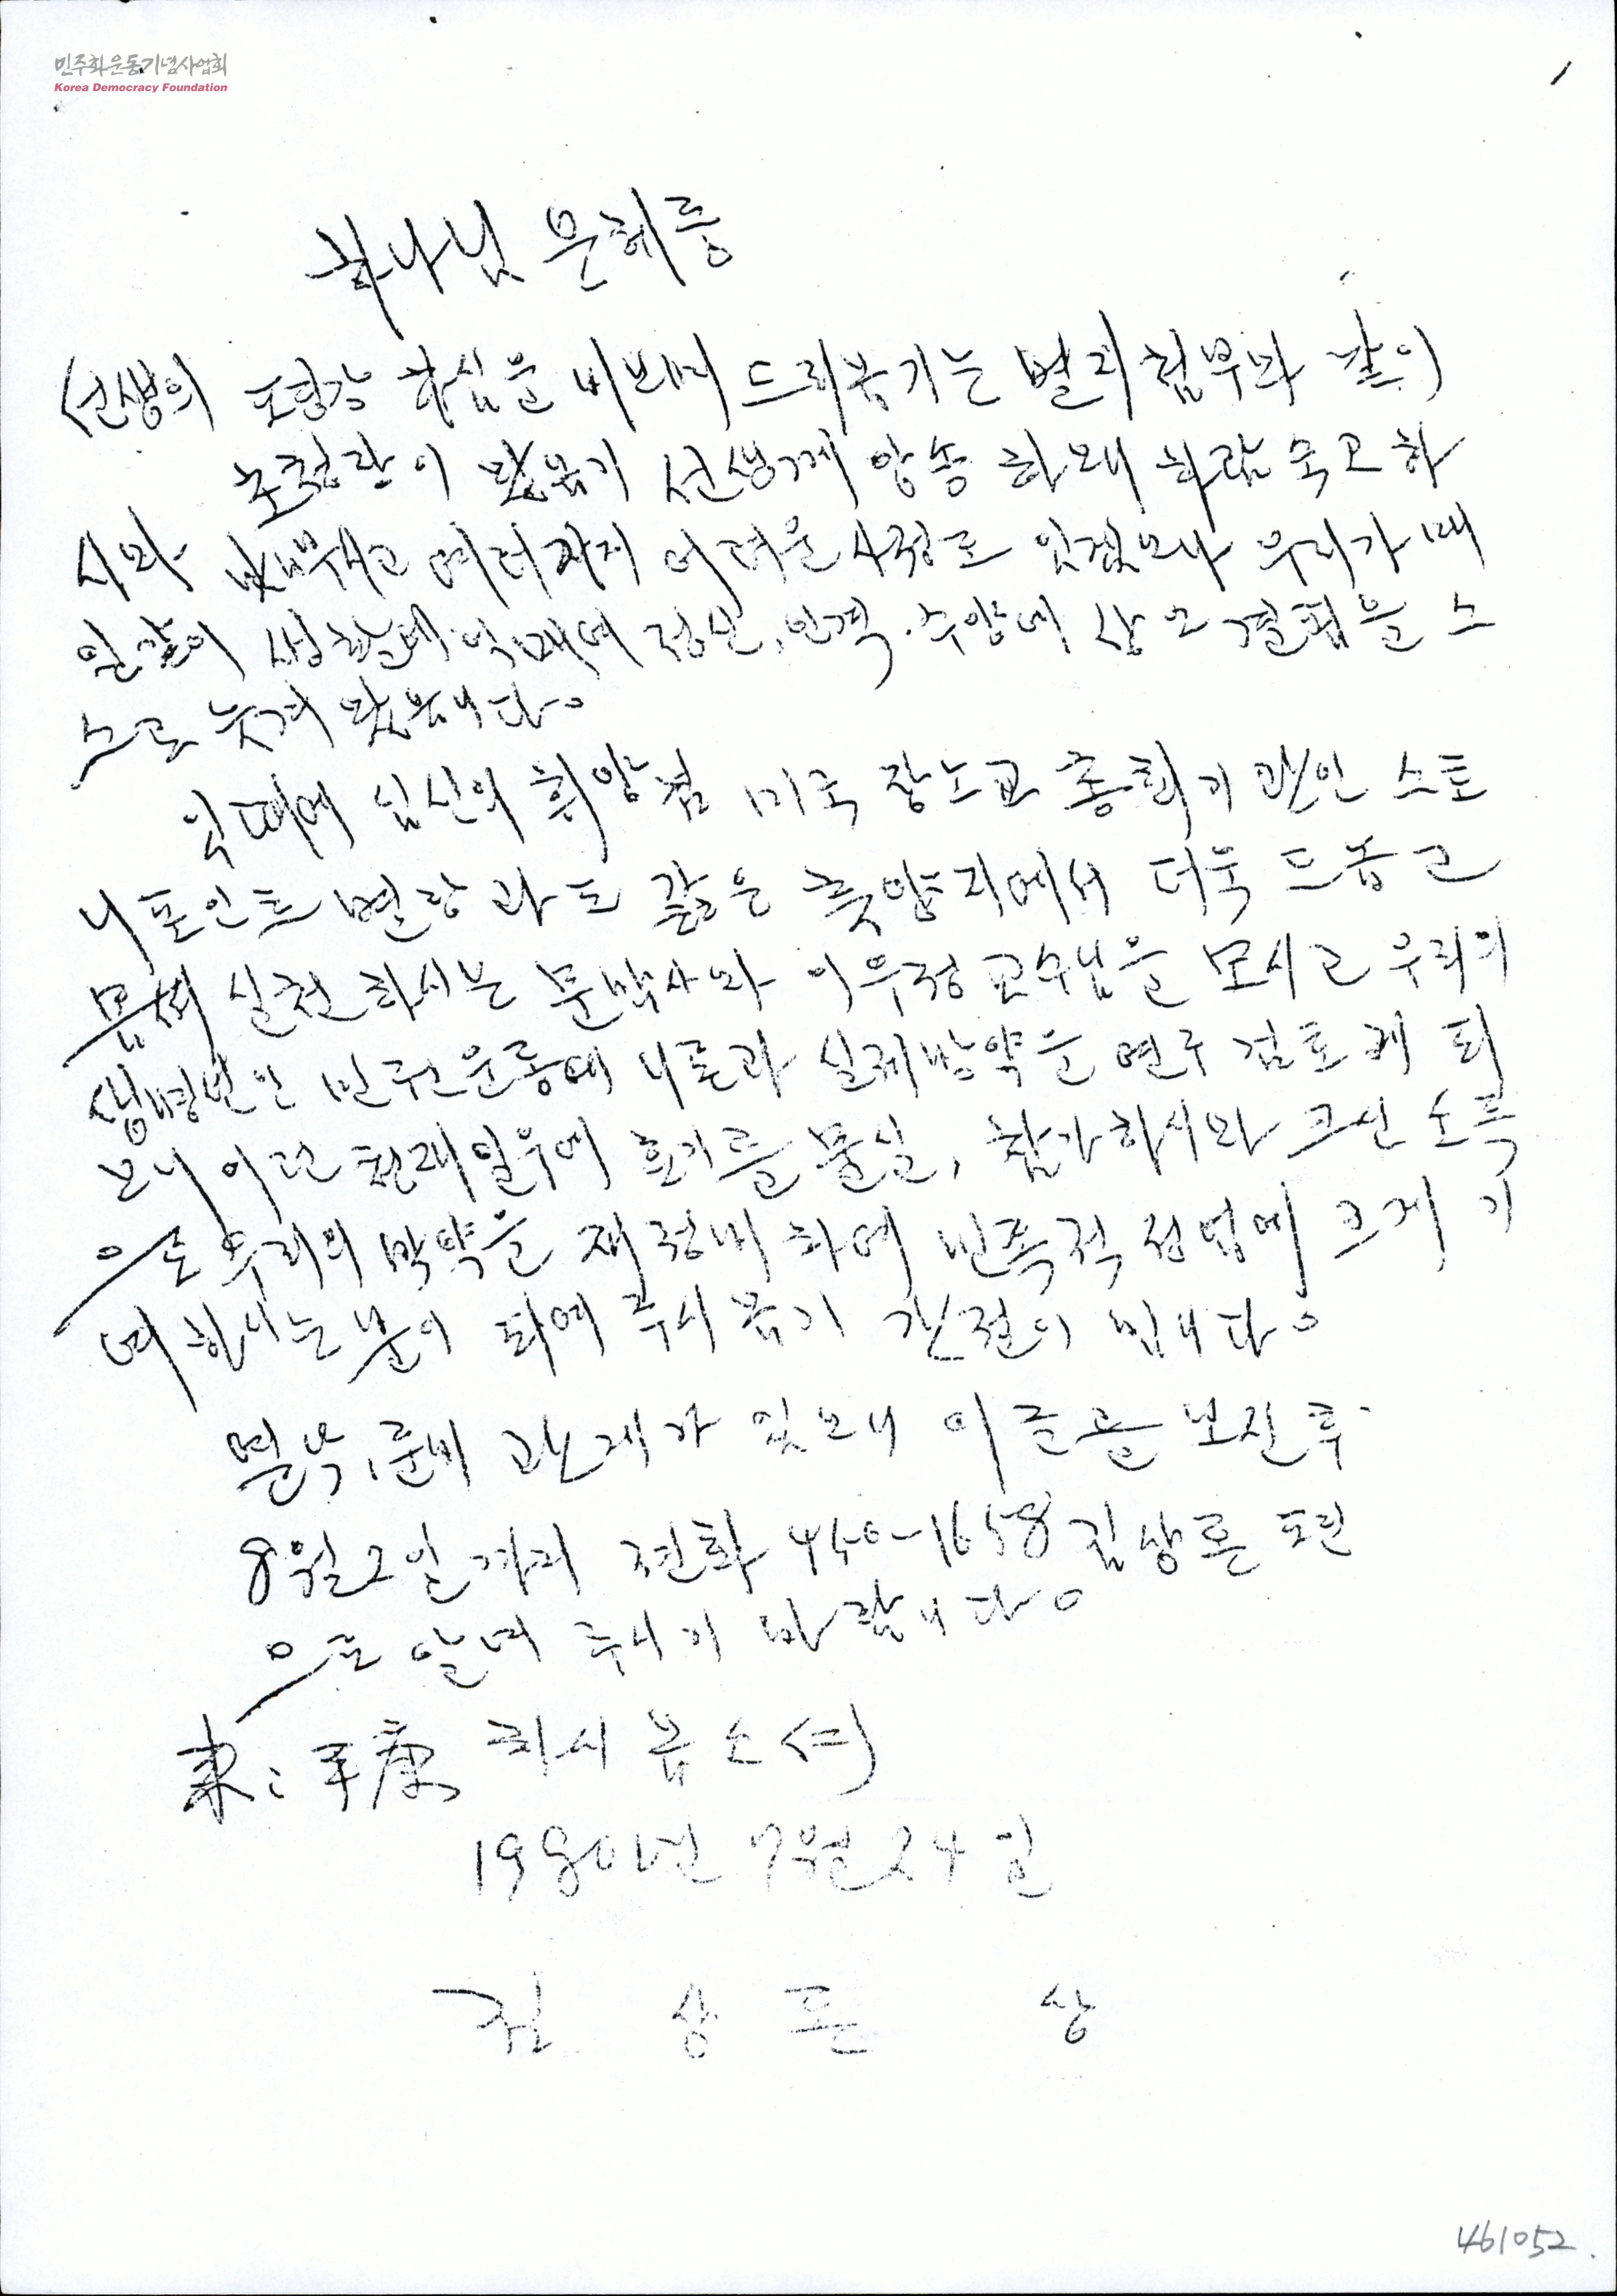 민주화운동기념사업회
Korea Democracy Foundation
1
하나님 은혜중
선생의 또한강 하심을 비오며 드리옵기는 별지 첨부와 같이
초청장이 왔옵기 선생께 앙송 하오니 하람 숙고 하
시와 여러가지 어려운 사정도 있겠으나 우리가 매
일같이 생활에 억매여 정신, 인격, 수양에 상호결핍을 스
스로 늣겨 왔읍니다。
이때에 심신의 휘양겸 미국 장노교 총회기관인 스토
니 포인트 별장과도 같은 휴양지에서 더욱 드높고
몸써 실천하시는 문박사와 이우정 교수님을 모시고 우리의
생명선인 민권운동에 니론과 실제방략을 연구 검토케 되
오니 이런 천재일우에 호기를 물실, 참가하시와 크신 소득
으로 우리의 방략을 재정비하여 민족적 성업에 크게 기
여하시는 분이 되여 주시옵기 간절이 빕니다。
연락, 준비 관계가 있으니 이 글을 보신 후
8월 2일까지 전화 450-1658 김상돈 또는
으로 알려 주시기 바랍니다。
하시옵소서
1980년 7월 24일
김 상 돈 상
461052